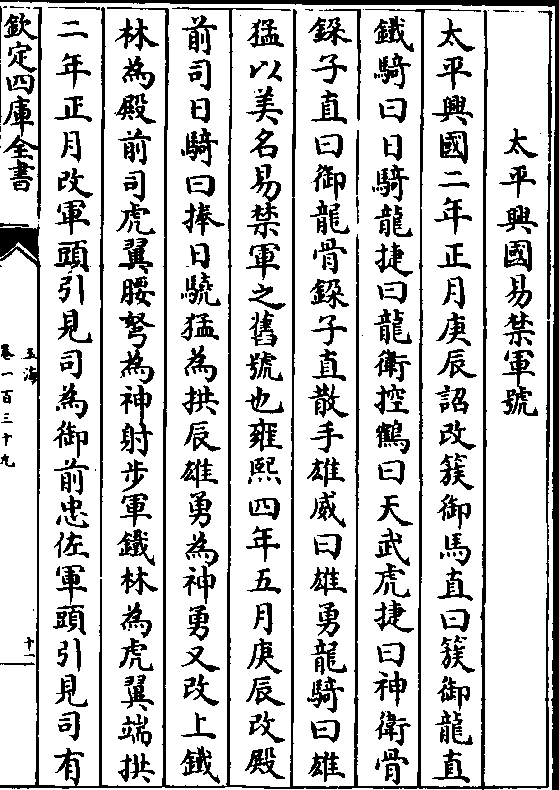 太平興國易禁軍號
太平興國二年正月庚辰詔改簇御馬直曰簇御龍直
鐵騎曰日騎龍捷曰龍衛控鶴曰天武虎捷曰神衛骨
鎟子直曰御龍骨鎟子直散手雄威曰雄勇龍騎曰雄
猛以美名易禁軍之舊號也雍熙四年五月庚辰改殿
前司日騎曰捧日驍猛為拱辰雄勇為神勇又改上鐵
林為殿前司虎翼腰弩為神射步軍鐵林為虎翼端拱
二年正月改軍頭引見司為御前忠佐軍頭引見司有
欽定四庫全書
玉海
卷一百三十九
十一